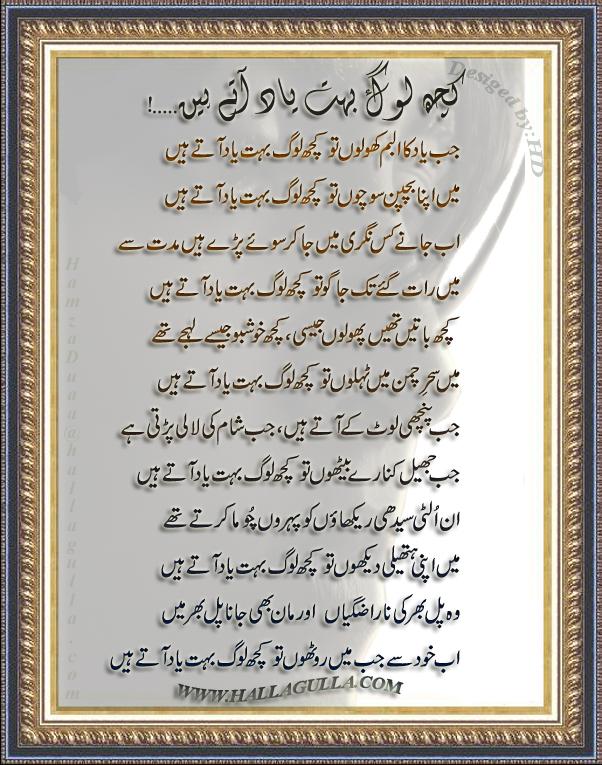 کچھ لوگ بہت یاد آتے ہیں.....!
جب یاد کا البم کھولوں تو کچھ لوگ بہت یاد آتے ہیں
میں اپنا بچپن سوچوں تو کچھ لوگ بہت یاد آتے ہیں
اب جانے کس نگری میں جا کر سوئے پڑے ہیں مدت سے
میں رات گئے تک جاگو تو کچھ لوگ بہت یاد آتے ہیں
کچھ باتیں تھیں پھولوں جیسی، کچھ خوشبو جیسے لہجے تھے
میں سحرِ چمن میں ٹہلوں تو کچھ لوگ بہت یاد آتے ہیں
جب پنچھی لوٹ کے آتے ہیں، جب شام کی لالی پڑتی ہے
جب جھیل کنارے بیٹھوں تو کچھ لوگ بہت یاد آتے ہیں
ان اُلٹی سیدھی ریکھاؤں کو پہروں چُوما کرتے تھے
میں اپنی ہتھیلی دیکھوں تو کچھ لوگ بہت یاد آتے ہیں
وہ پل بھر کی ناراضگیاں اور مان بھی جانا پل بھر میں
اب خود سے جب میں روٹھوں تو کچھ لوگ بہت یاد آتے ہیں
WWW.HALLAGULLA.COM
Desiged by:HD
HamzaDuaa@hallagulla.com